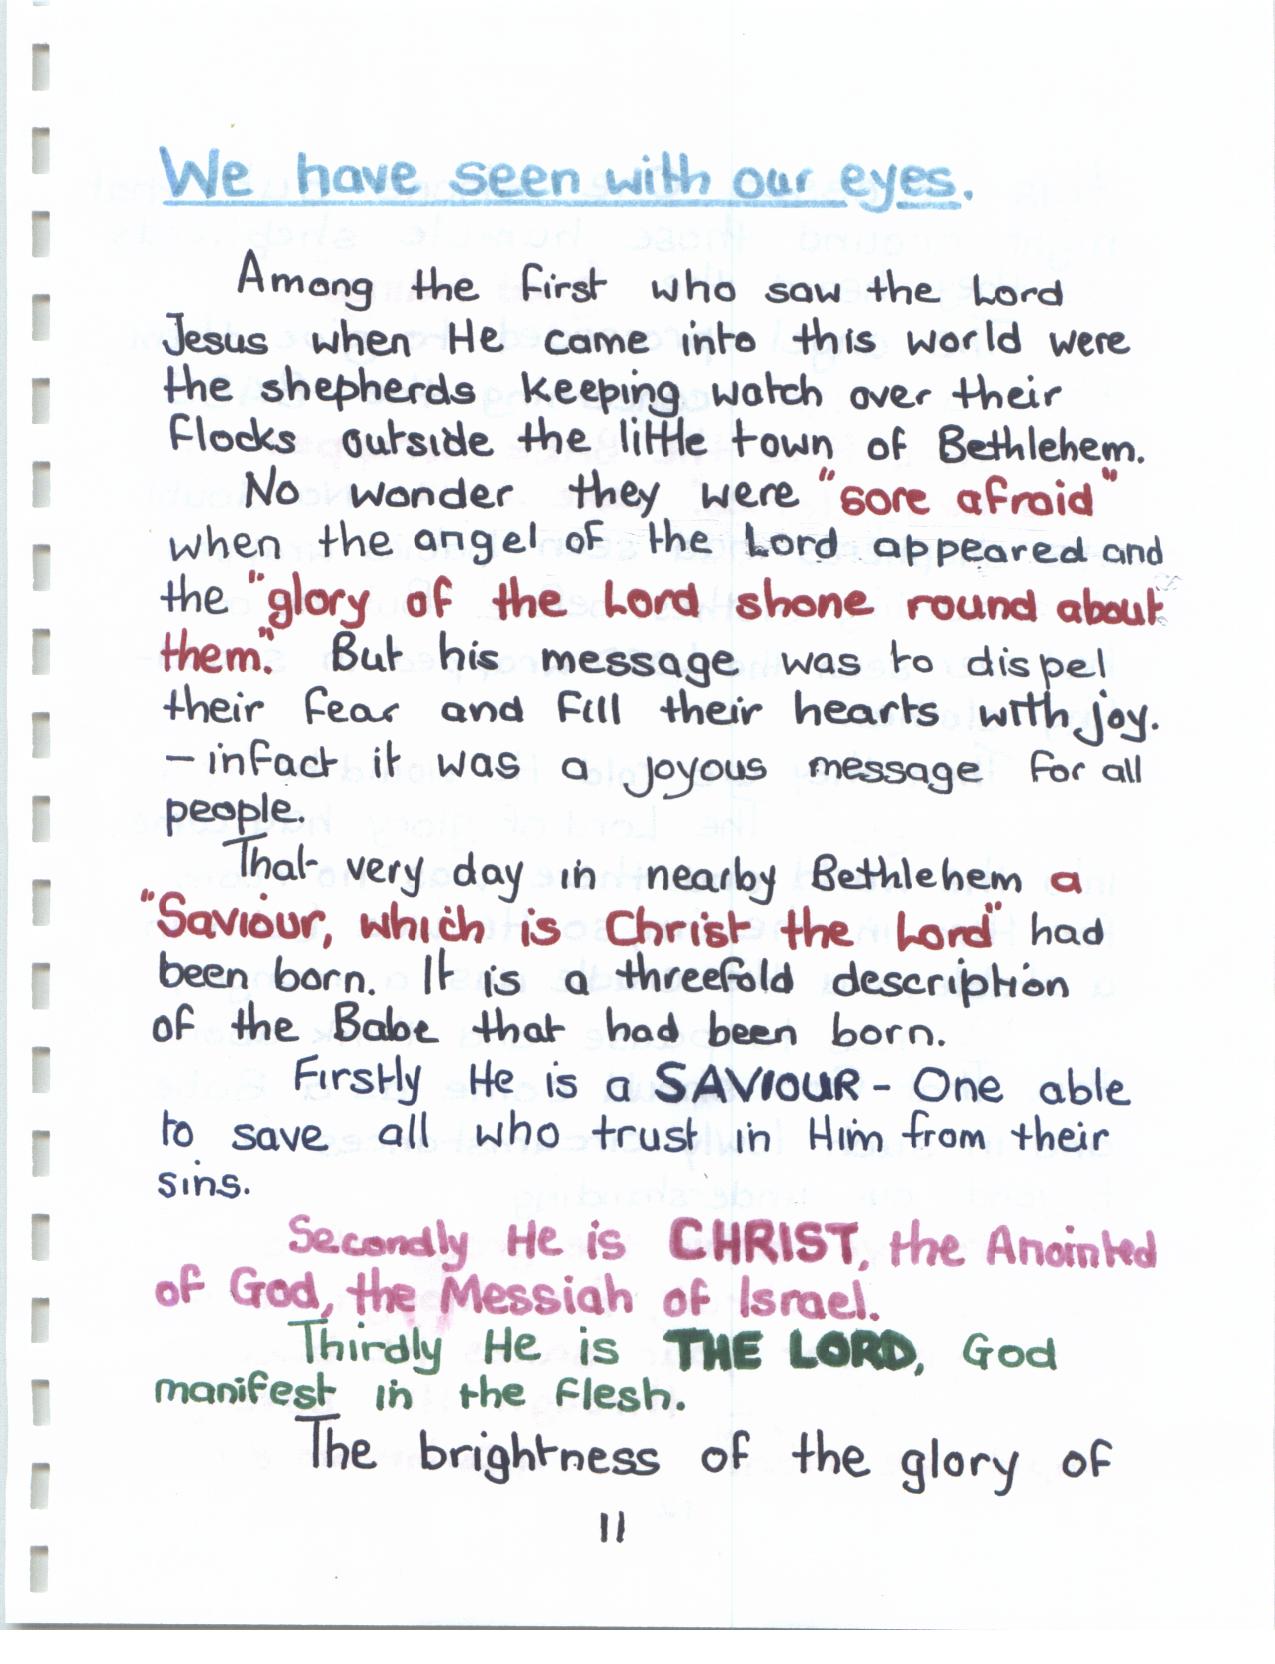 We have seen with our eyes.
Among the first who saw the Lord
Jesus when He came into this world were
the shepherds keeping watch over their
flocks outside the little town of Bethlehem.
No wonder they were "sore afraid"
when the angel of the Lord appeared and
the "glory of the Lord shone round about
them." But his message was to dispel
their fear and fill their hearts with joy.
- infact it was a joyous message for all
people.
That very day in nearby Bethlehem a
"Saviour, which is Christ the Lord" had
been born. It is a threefold description
of the Babe that had been born.
Firstly He is a SAVIOUR - One able
to save all who trust in Him from their
sins.
Secondly He is CHRIST, the Anointed
of God, the Messiah of Israel.
Thirdly He is THE LORD, God
manifest in the flesh.
The brightness of the glory of
11